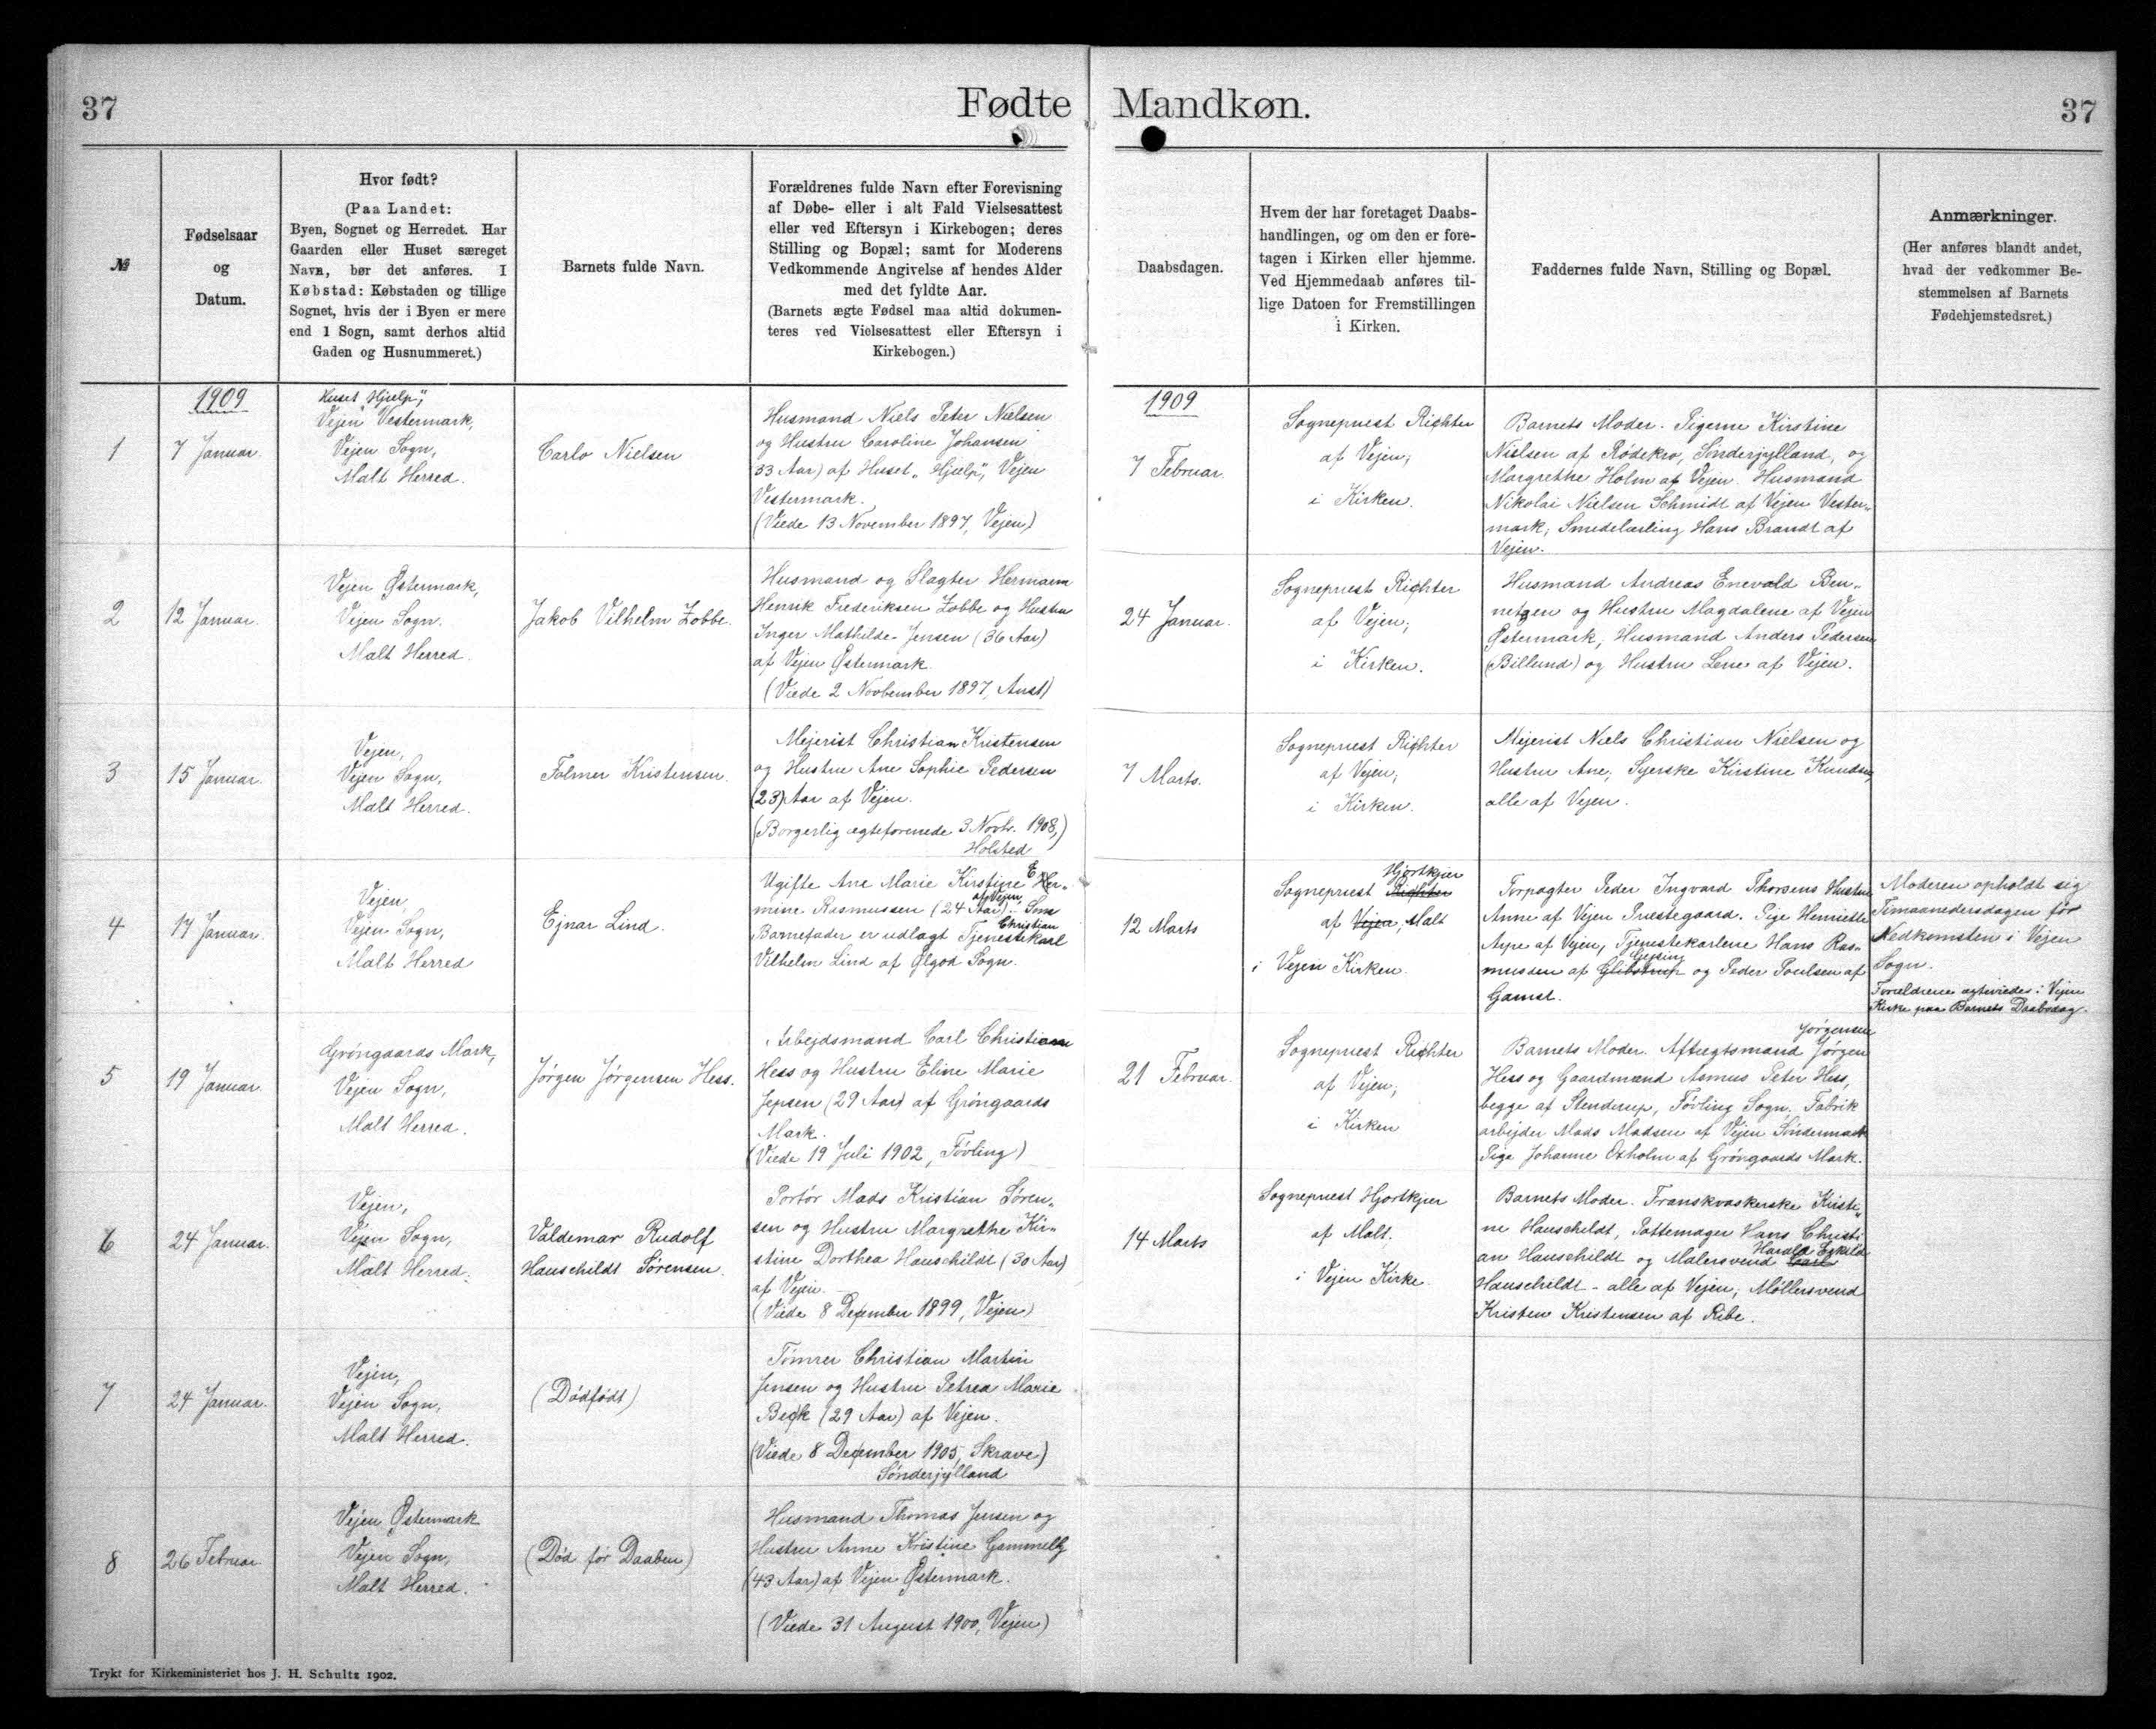 37
Fødte
Mandkøn.
37
№
Fødselsaar
og
Datum.
Hvor født?
(Paa Landet:
Byen, Sognet og Herredet. Har
Gaarden eller Huset særeget
Navn, bør det anføres. I
Købstad: Købstaden og tillige
Sognet, hvis der i Byen er mere
end 1 Sogn, samt derhos altid
Gaden og Husnummeret.)
Barnets fulde Navn.
Forældrenes fulde Navn efter Forevisning
af Døbe- eller i alt Fald Vielsesattest
eller ved Eftersyn i Kirkebogen; deres
Stilling og Bopæl; samt for Moderens
Vedkommende Angivelse af hendes Alder
med det fyldte Aar.
(Barnets ægte Fødsel maa altid dokumen-
teres ved Vielsesattest eller Eftersyn i
Kirkebogen.)
Daabsdagen.
Hvem der har foretaget Daabs-
handlingen, og om den er fore-
tagen i Kirken eller hjemme.
Ved Hjemmedaab anføres til-
lige Datoen for Fremstillingen
i Kirken.
Faddernes fulde Navn, Stilling og Bopæl.
Anmærkninger.
(Her anføres blandt andet,
hvad der vedkommer Be-
stemmelsen af Barnets
Fødehjemstedsret.)
1909
1
7 Januar.
Huset „Hjælp",
Vejen Vestermark,
Vejen Sogn,
Malt Herred.
Carlo Nielsen
Husmand Niels Peter Nielsen
og Hustru Caroline Johansen
33 Aar) af Huset „Hjælp", Vejen
Vestermark.
(Viede 13 November 1897, Vejen)
1909
7 Februar.
Sognepræst Richter
af Vejen,
i Kirken.
Barnets Moder. Pigerne Kirstine
Nielsen af Rødekro, Sønderjylland, og
Margrethe Holm af Vejen. Husmand
Nikolai Nielsen Schmidt af Vejen Vester-
mark; Smedelærling Hans Brandt af
Vejen.
2
12 Januar.
Vejen Østermark,
Vejen Sogn.
Malt Herred.
Jakob Vilhelm Zobbe.
Husmand og Slagter Hermann
Henrik Frederiksen Zobbe og Hustru
Inger Mathilde Jensen (36 Aar)
af Vejen Østermark.
(Viede 2 Novbember 1897, Anst)
24 Januar.
Sognepræst Richter
af Vejen;
i Kirken.
Husmand Andreas Enevold Ben-
netzen og Hustru Magdalene af Vejen
Østermark, Husmand Anders Pedersen
(Billund) og Hustru Lene af Vejen.
3
15 Januar.
Vejen,
Vejen Sogn,
Malt Herred.
Folmer Kristensen.
Mejerist Christian Kristensen
og Hustru Ane Sophie Pedersen
(23) Aar af Vejen.
(Borgerlig ægteforenede 3 Novb. 1908,)
Holsted
7 Marts.
Sognepræst Richter
af Vejen;
i Kirken.
Mejerist Niels Christian Nielsen og
Hustru Ane; Syerske Kirstine Knudsen,
alle af Vejen.
4
17 Januar.
Vejen,
Vejen Sogn,
Malt Herred
Ejnar Lind.
Ugifte Ane Marie Kirstine E Her-
mine Rasmussen (24 Aar) af Vejen. Som
Barnefader er udlagt Tjenestekarl Christian
Vilhelm Lind af Ølgod Sogn.
12 Marts
Sognepræst Richter Hjortkjær
af Vejen, Malt
i Vejen Kirken.
Forpagter Peder Ingvard Thorsens Hustru
Anne af Vejen Præstegaard. Pige Henriette
Aype af Vejen, Tjenestekarlene Hans Ras-
mussen af Glibstrup Gejsing og Peder Poulsen af
Gamst.
Moderen opholdt sig
Timaanedersdagen før
Nedkomsten i Vejen
Sogn.
Forældrene ægteviedes i Vejen
Kirke paa Barnets Daabsdag.
5
19 Januar.
Grøngaards Mark,
Vejen Sogn,
Malt Herred.
Jørgen Jørgensen Hess.
Arbejdsmand Carl Christian
Hess og Hustru Eline Marie
Jepsen (29 Aar) af Grøngaards
Mark.
(Viede 19 Juli 1902, Føvling)
21 Februar.
Sognepræst Richter
af Vejen;
i Kirken
Barnets Moder. Aftægtsmand Jørgen Jørgensen
Hess og Gaardmand Asmus Peter Hess,
begge af Stenderup, Føvling Sogn, Fabrik
arbejder Mads Madsen af Vejen Søndermark
Pige Johanne Oxholm af Grøngaards Mark.
6
24 Januar.
Vejen,
Vejen Sogn,
Malt Herred.
Valdemar Rudolf
Hauschildt Sørensen.
Portør Mads Kristian Søren-
sen og Hustru Margrethe Kir-
stine Dorthea Hauschildt (30 Aar)
af Vejen.
(Viede 8 December 1899, Vejen)
14 Marts
Sognepræst Hjortkjær
af Malt.
i Vejen Kirke.
Barnets Moder. Franskvaskerske Kirsti-
ne Hauschildt, Pottemager Hans Christi
an Hauschildt og Malersvend Carl Harald Eskild
Hauschildt - alle af Vejen; Møllersvend
Kristen Kristensen af Ribe.
7
24 Januar.
Vejen,
Vejen Sogn,
Malt Herred.
(Dødfødt)
Tømrer Christian Martin
Jensen og Hustru Petrea Marie
Beck (29 Aar) af Vejen.
(Viede 8 December 1905, Skrave)
Sønderjylland
8
26 Februar
Vejen Østermark
Vejen Sogn,
Malt Herred.
(Død før Daaben)
Husmand Thomas Jensen og
Hustru Anne Kristine Gammelby
(43 Aar) af Vejen Østermark.
(Viede 31 August 1900, Vejen)
Trykt for Kirkeministeriet hos J. H. Schultz 1902.